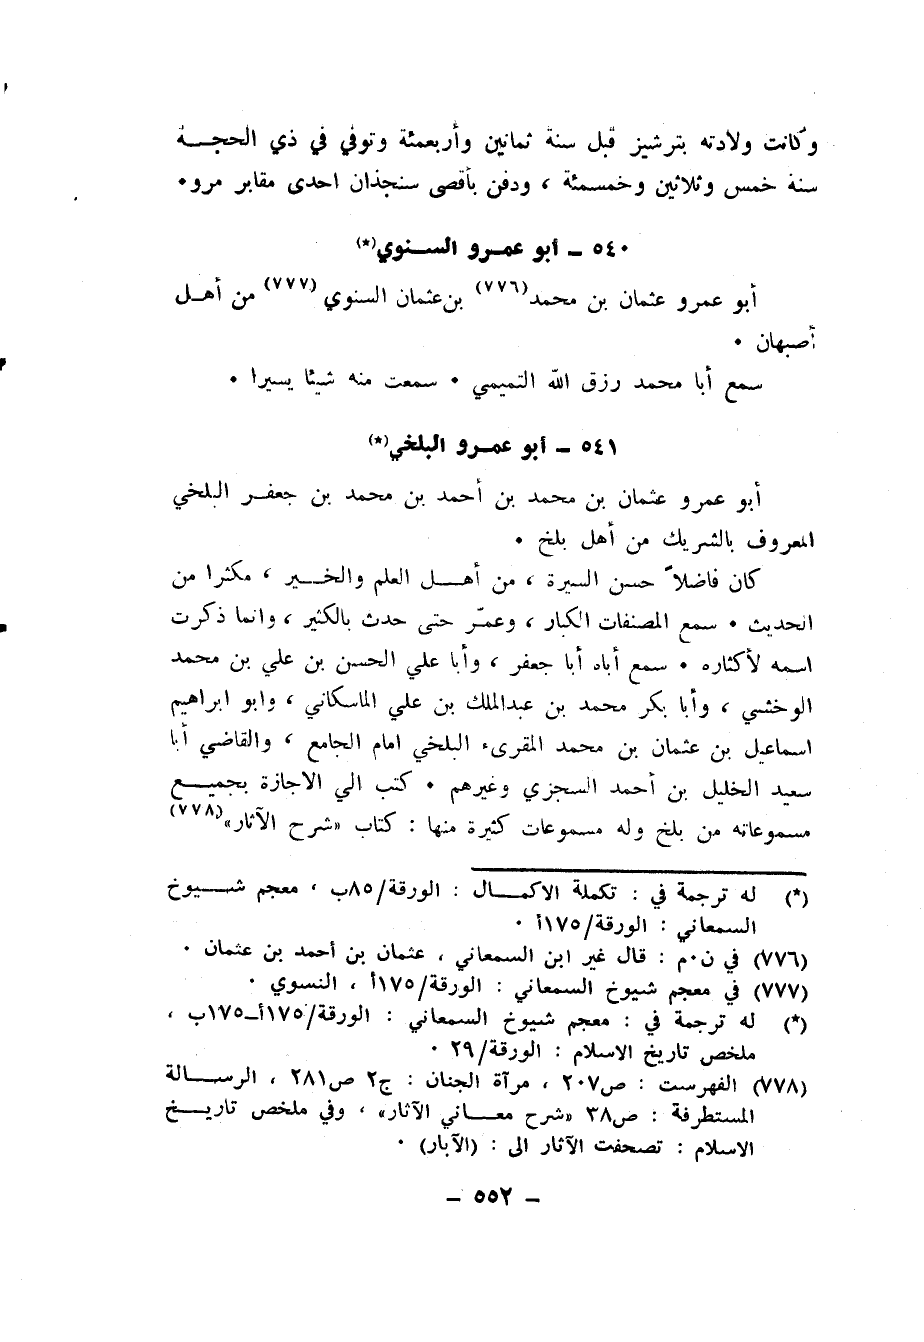 وكانت ولادته بترشيز قبل سنة ثمانين وأربعمئة وتوفي في ذي الحجــة
سنة خمس وثلاثين وخمسمئة ، ودفن بأقصى سنجذان احدى مقابر مرو٠
٥٤٠ ــ أبو عمـرو الســنوي(*)
أبو عمرو عثمان بن محمد(٧٧٦) بن عثمان السنوي (٧٧٧) من أهــل
أصبهان ٠
سمع أبا محمد رزق الله التميمي ٠ سمعت منه شيئا يسيرا ٠
٥٤١ ــ أبو عمــرو البلخي(*)
أبو عمرو عثمان بن محمد بن أحمد بن محمد بن جعفــر البلخي
المعروف بالشريك من أهل بلخ ٠
كان فاضلاً حسن السيرة ، من أهــل العلم والخــير ، مكثرا من
الحديث ٠ سمع المصنفات الكبار ، وعمّر حتى حدث بالكثير ، وانما ذكرت
اسمه لأكثاره ٠ سمع أباه أبا جعفر ، وأبا علي الحسن بن علي بن محمد
الوخشي ، وأبا بكر محمد بن عبدالملك بن علي الماسكاني ، وابو ابراهيم
اسماعيل بن عثمان بن محمد المقرىء البلخي امام الجامع ، والقاضي أبا
سعيد الخليل بن أحمد السجزي وغيرهم ٠ كتب الي الاجازة بجميــع
مسموعاته من بلخ وله مسموعات كثيرة منها : كتاب «شرح الآثار»(٧٧٨)
(*) له ترجمة في : تكملة الاكمــال : الورقة/٨٥ب ، معجم شــيوخ
السمعاني : الورقة/١٧٥أ ٠
(٧٧٦) في ن٠م : قال غير ابن السمعاني ، عثمان بن أحمد بن عثمان ٠
(٧٧٧) في معجم شيوخ السمعاني : الورقة/١٧٥أ ، النسوي ٠
(*) له ترجمة في : معجم شيوخ السمعاني : الورقة/١٧٥أــ١٧٥ب ،
ملخص تاريخ الاسلام : الورقة/٢٩ ٠
(٧٧٨) الفهرست : ص٢٠٧ ، مرآة الجنان : ج٢ ص٢٨١ ، الرســالة
المستطرفة : ص٣٨ «شرح معــاني الآثار» ، وفي ملخص تاريــخ
الاسلام : تصحفت الآثار الى : (الآبار) ٠
ــ ٥٥٢ ــ